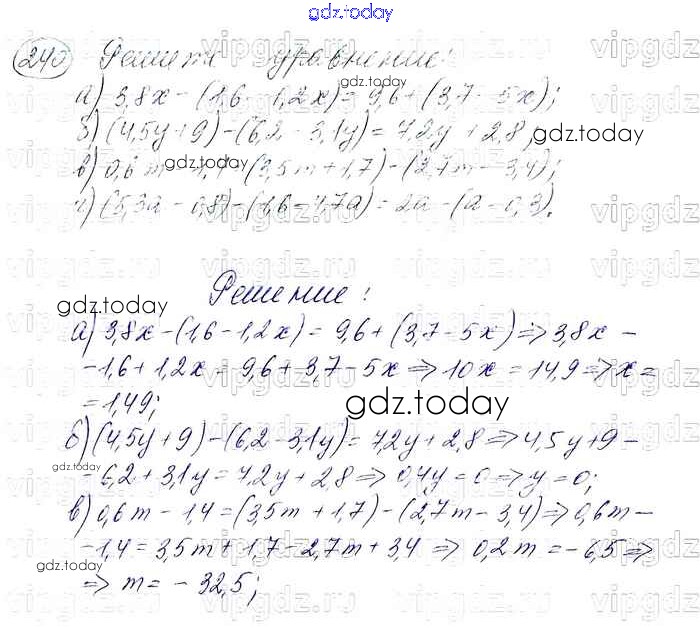 gdz.today
240 Решите уравнение:
а) 3,8x - (1,6 - 1,2x) = 9,6 + (3,7 - 5x);
б) (4,5y + 9) - (6,2 - 3,1y) = 7,2y + 2,8;
в) 0,6m - 1,4 = (3,5m + 1,7) - (2,7m - 3,4);
г) (5,3a - 0,8) - (1,6 - 4,7a) = 2a - (a - 0,3).
Решение:
а) 3,8x - (1,6 - 1,2x) = 9,6 + (3,7 - 5x) => 3,8x -
- 1,6 + 1,2x = 9,6 + 3,7 - 5x => 10x = 14,9 => x =
= 1,49;
gdz.today
б) (4,5y + 9) - (6,2 - 3,1y) = 7,2y + 2,8 => 4,5y + 9 -
- 6,2 + 3,1y = 7,2y + 2,8 => 0,4y = 0 => y = 0;
в) 0,6m - 1,4 = (3,5m + 1,7) - (2,7m - 3,4) => 0,6m -
- 1,4 = 3,5m + 1,7 - 2,7m + 3,4 => 0,2m = - 6,5 =>
=> m = - 32,5;